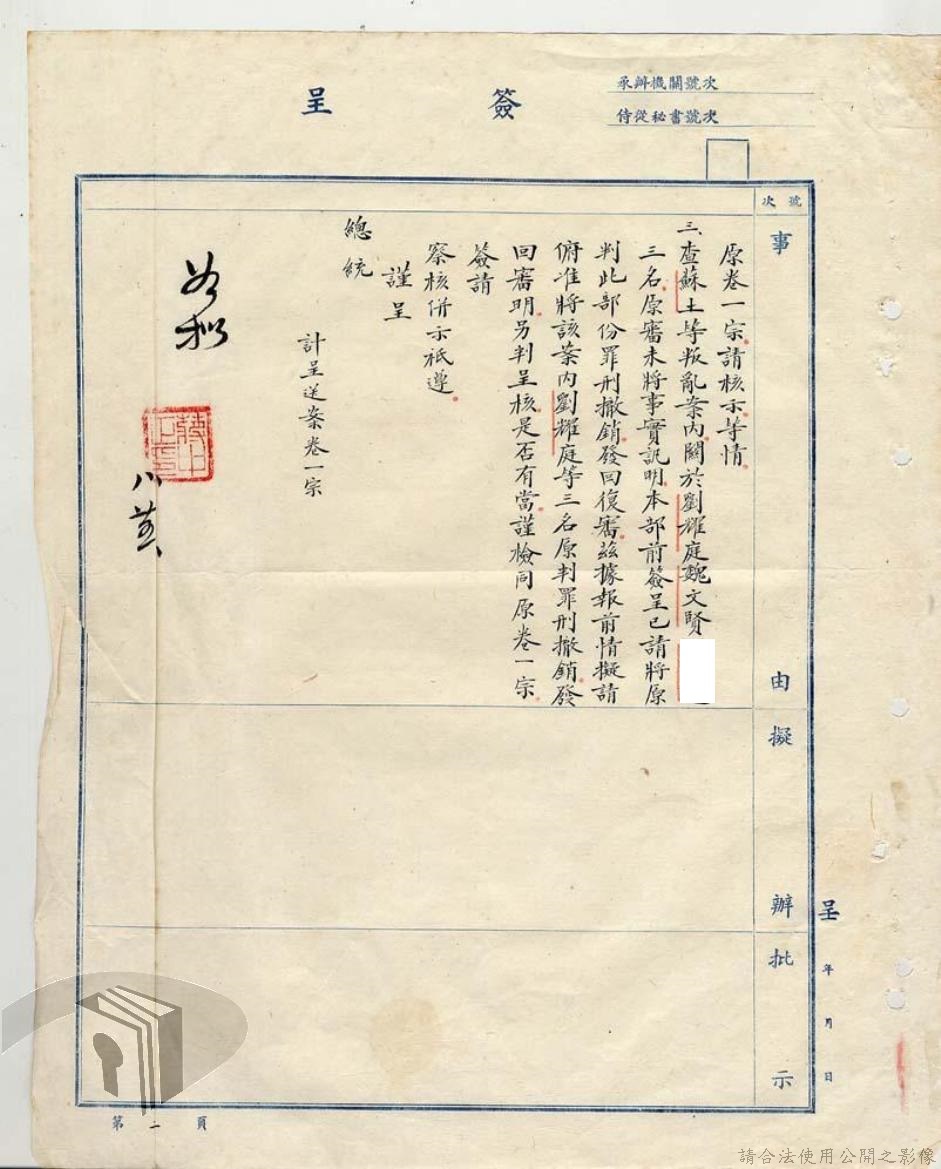 簽呈
承辦機關號次
侍從秘書號次
號次
事由
擬辦
批示
原卷一宗請核示等情
三、查蘇土等叛亂案內關於劉耀庭魏文賢
三名原審未將事實訊明本部前簽呈已請將原
判此部份罪刑撤銷發回復審茲據報前情擬請
俯准將該案內劉耀庭等三名原判罪刑撤銷發
回審明另判呈核是否有當謹檢同原卷一宗
簽請
察核併示祇遵
謹呈
總統
計呈送案卷一宗
如擬
呈
年
月
日
第二頁
請合法使用公開之影像